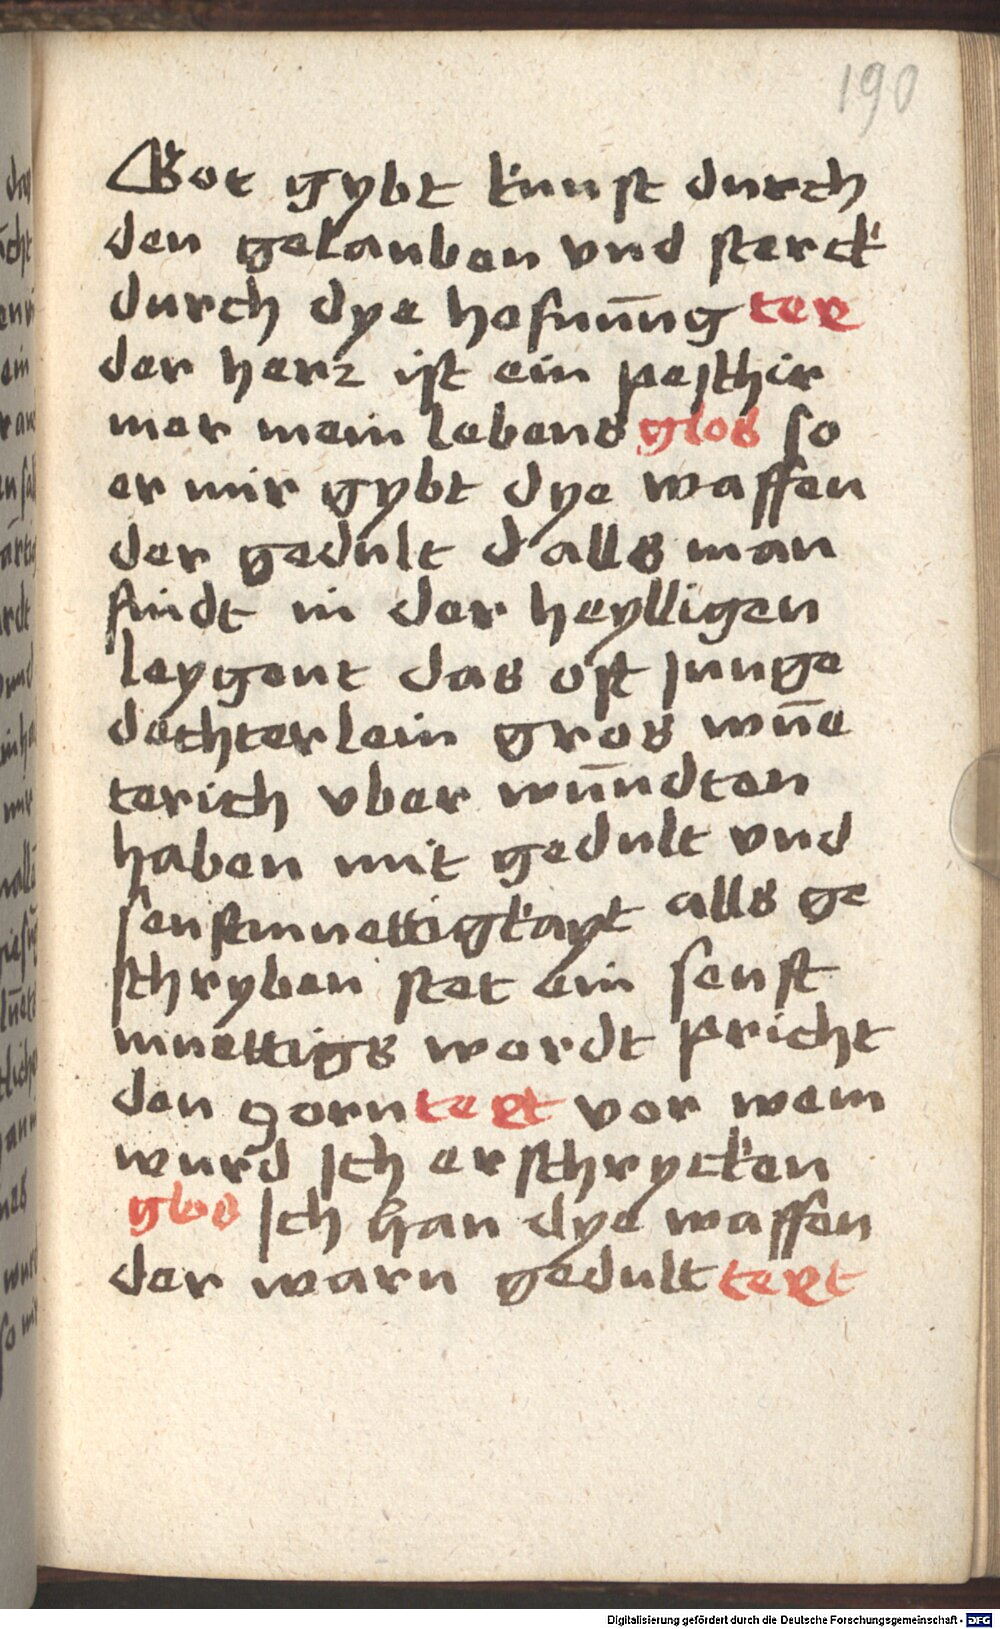 190
Got gybt kunst durch
den gelauben vnd sterck
durch dye hofnūng tex
der herz ist ein pesthir
mer mein lebens glos so
er mir gybt dye waffen
der gedult d alls man
findt in der heylligen
leygent das oft Junge
dechterlein gros wūe
terich vber wūndten
haben mit gedult vnd
senftmuettigkayt alls ge
schryben stet ein senft
muettigs wordt pricht
den zorn text vor wem
wurd Ich erschrycken
glos Ich han dye waffen
der warn gedult text
Digitalisierung gefördert durch die Deutsche Forschungsgemeinschaft - DFG